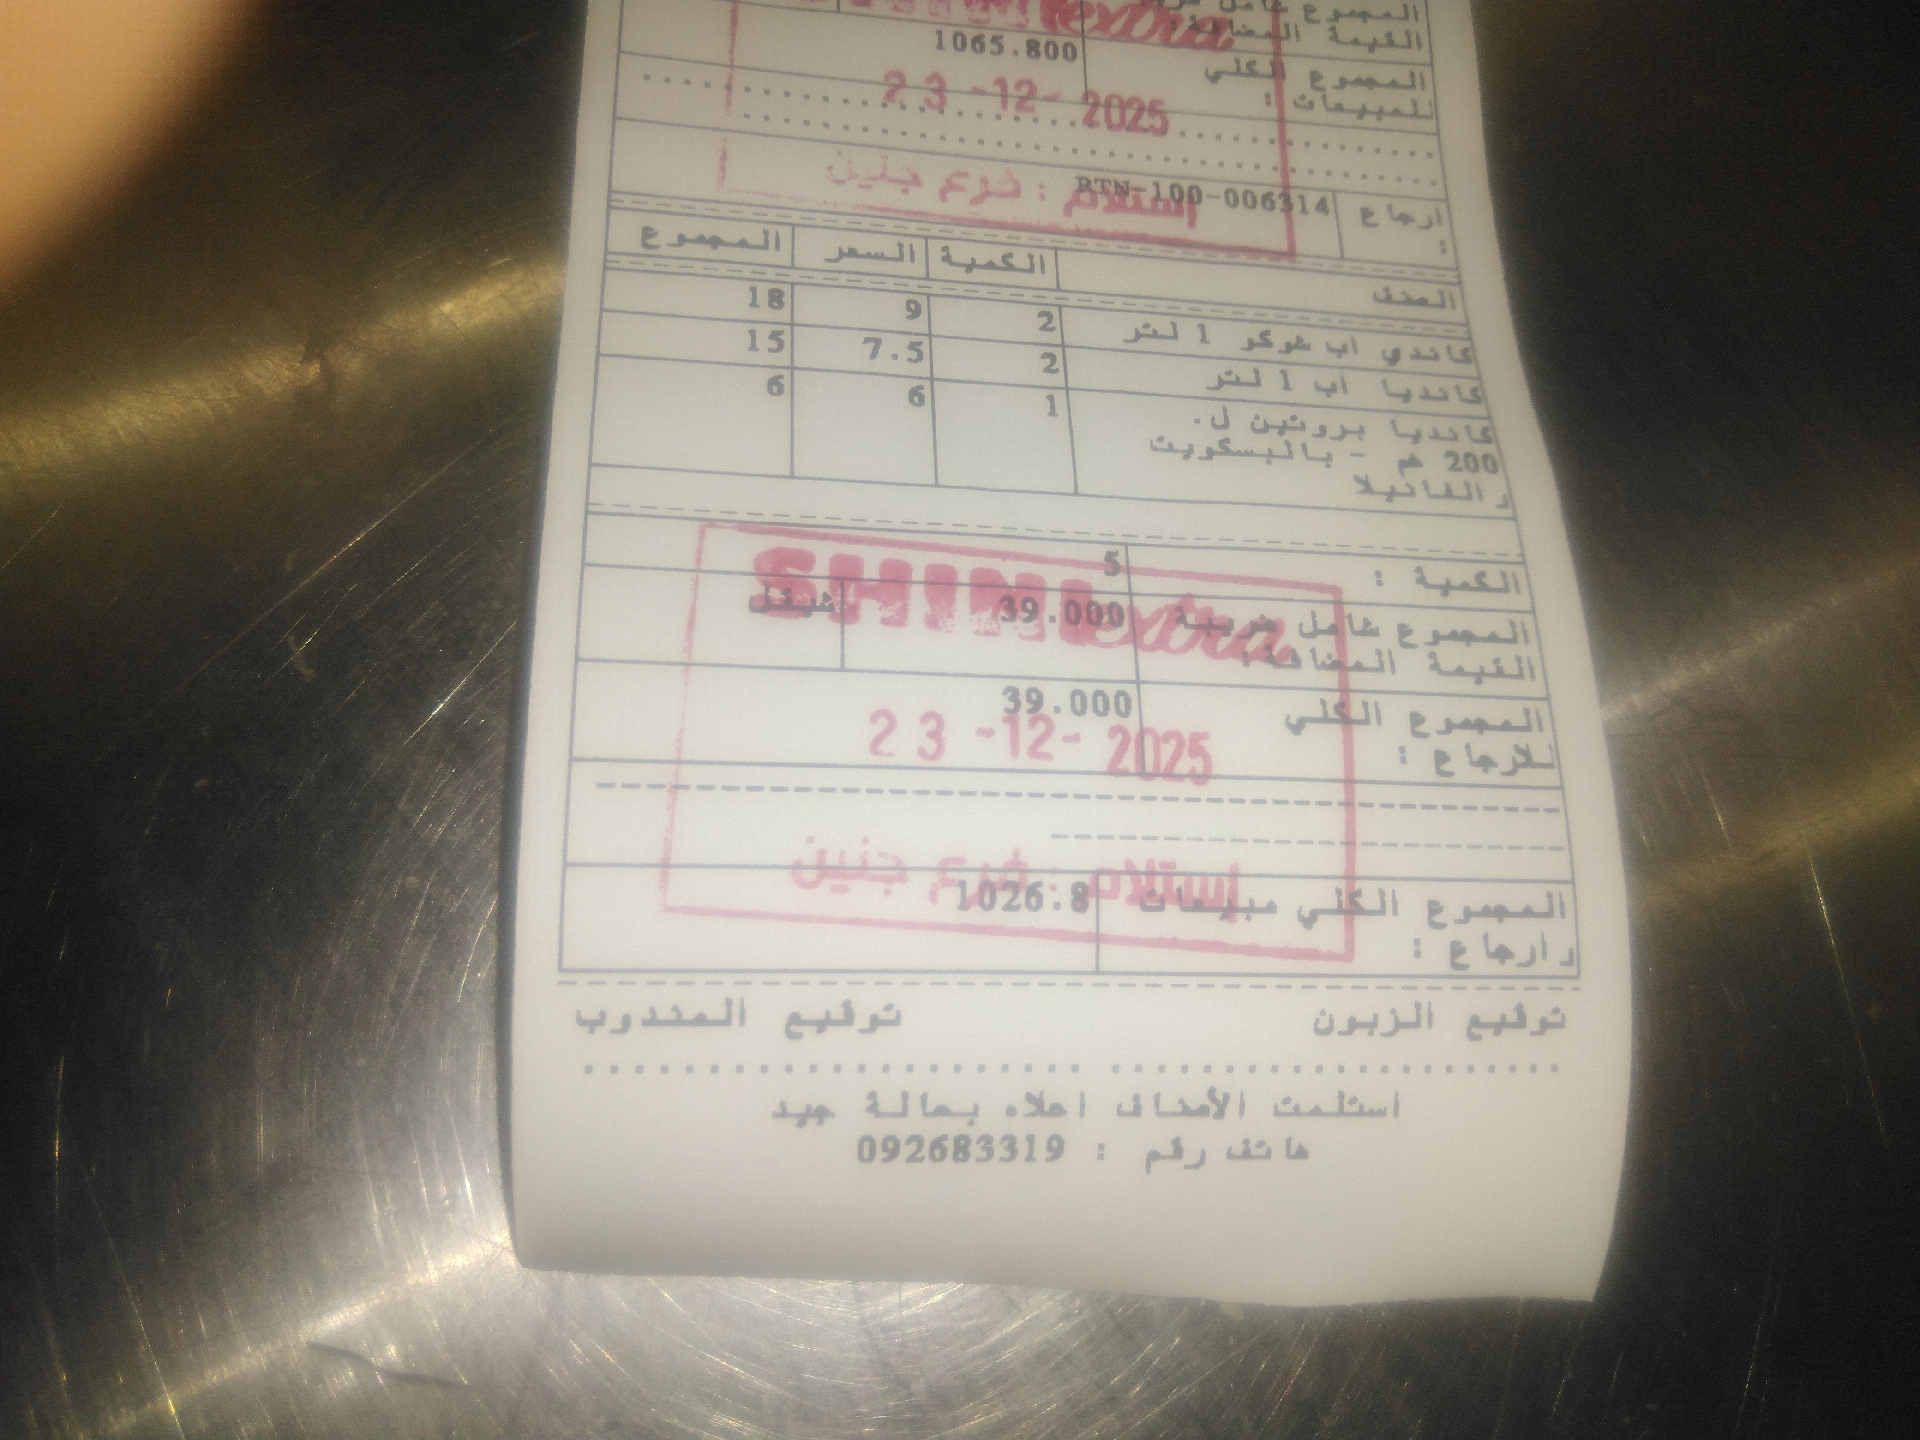 المجموع شامل ضريبة
القيمة المضافة:
المجموع الكلي للمبيعات : 1065.800
SHINI extra
23 -12- 2025
إستلام : فرع جنين
ارجاع : RTN-100-006314
الصنف الكمية السعر المجموع
كاندي اب شوكو 1 لتر 2 9 18
كانديا اب 1 لتر 2 7.5 15
كانديا بروتين ل. 1 6 6
200 هم - بالبسكويت
و الفانيلا
الكمية : 5
المجموع شامل ضريبة 39.000 شيقل
القيمة المضافة:
المجموع الكلي 39.000
للارجاع :
SHINI extra
23 -12- 2025
إستلام : فرع جنين
المجموع الكلي مبيعات 1026.8
و ارجاع :
توقيع الزبون توقيع المندوب
استلمت الأصناف اعلاه بحالة جيد
هاتف رقم : 092683319